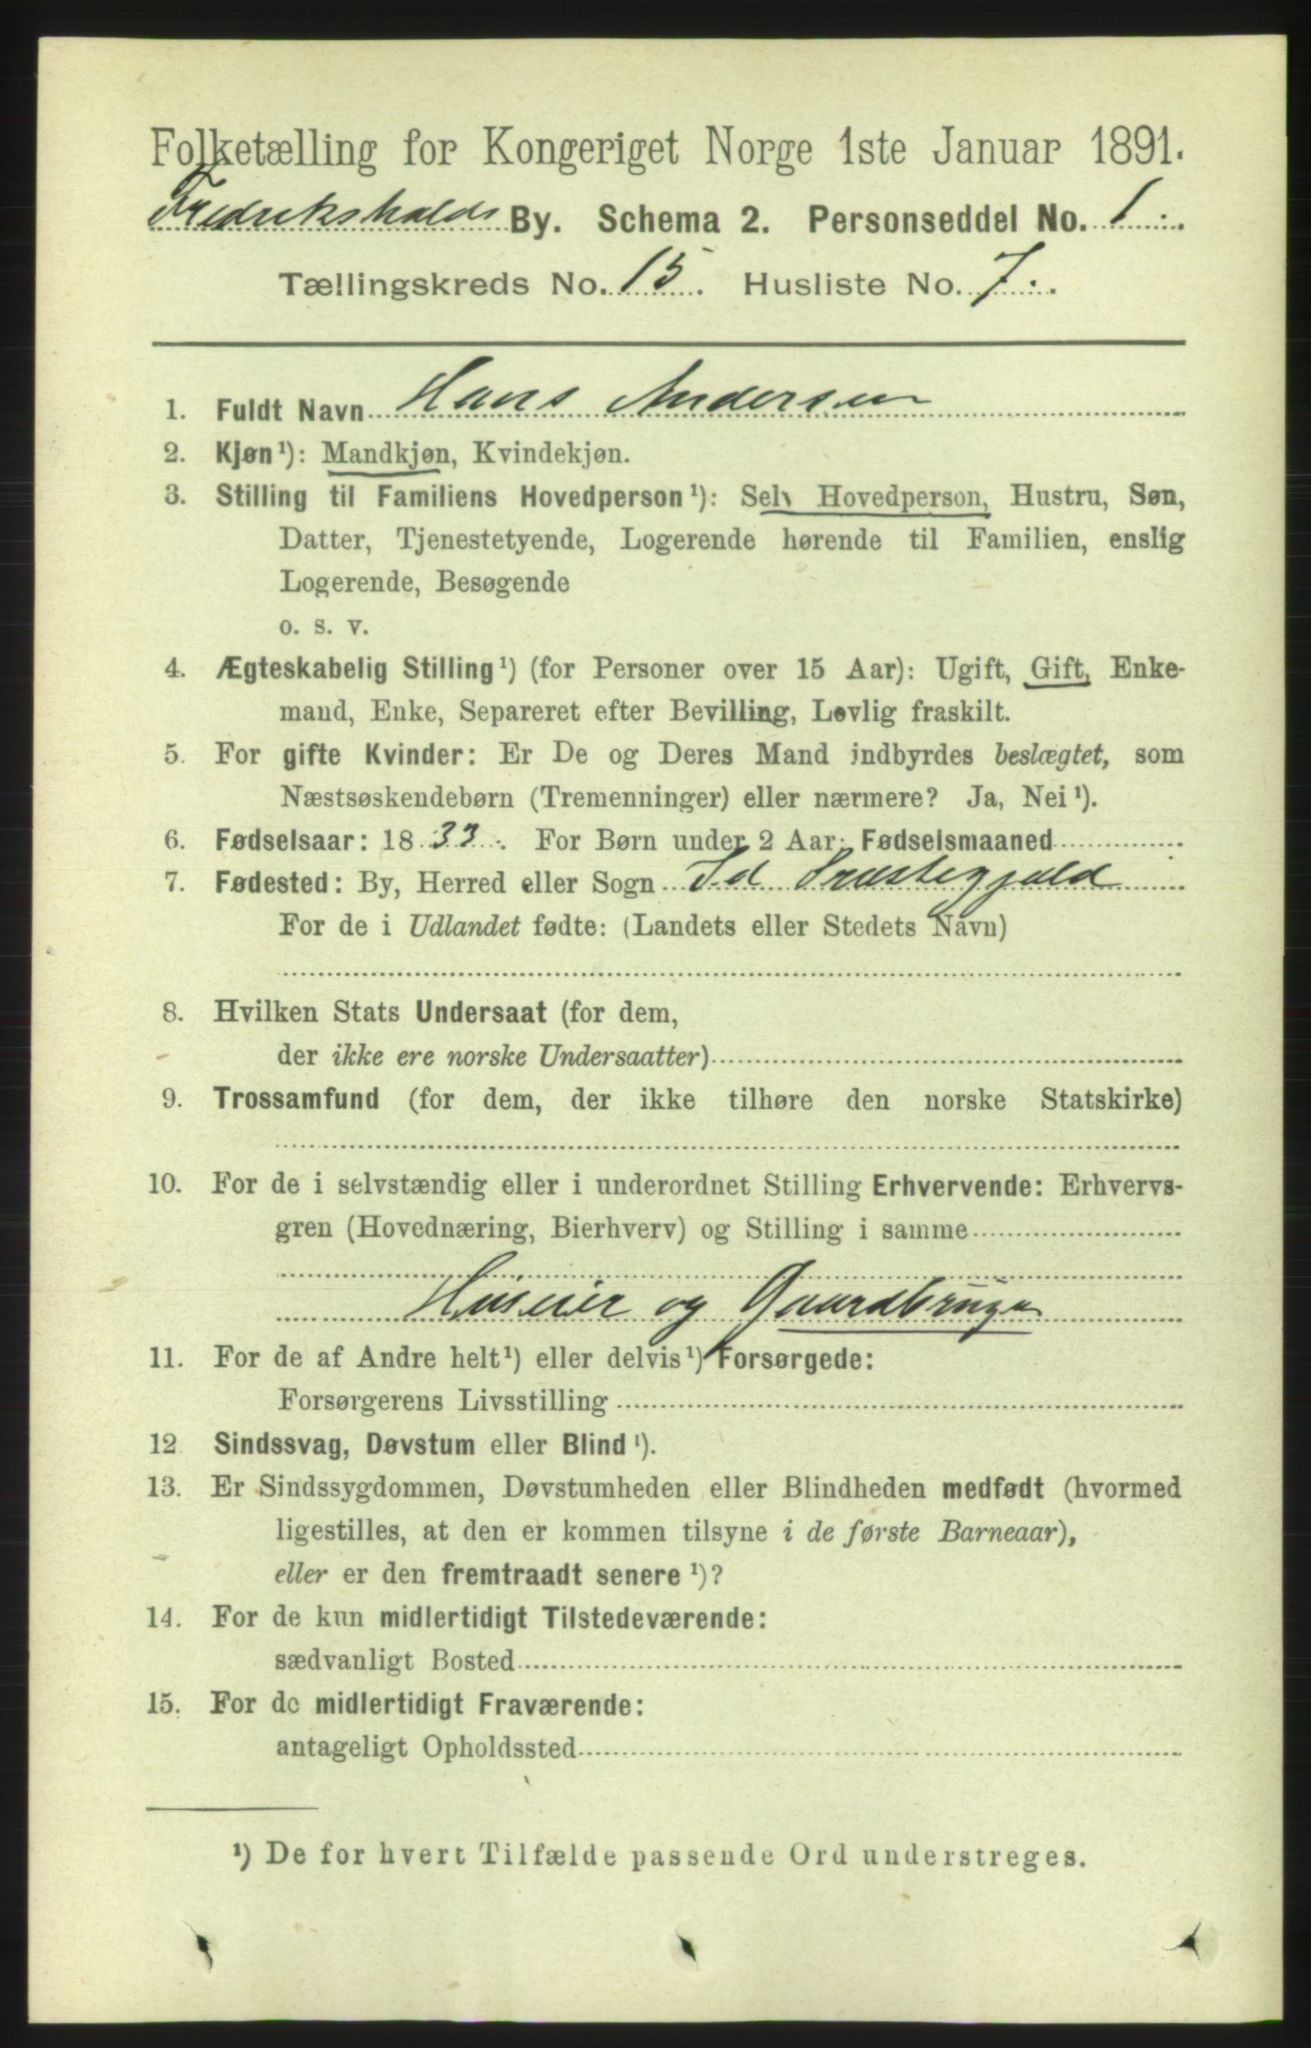 Folketælling for Kongeriget Norge 1ste Januar 1891.
Fredrikshalds By. Schema 2. Personseddel No. 1.
Tællingskreds No. 15. Husliste No. 7.
1. Fuldt Navn Hans Andersen
2. Kjøn¹): Mandkjøn, Kvindekjøn.
3. Stilling til Familiens Hovedperson¹): Selv Hovedperson, Hustru, Søn,
Datter, Tjenestetyende, Logerende hørende til Familien, enslig
Logerende, Besøgende
o. s. v.
4. Ægteskabelig Stilling¹) (for Personer over 15 Aar): Ugift, Gift, Enke-
mand, Enke, Separeret efter Bevilling, Lovlig fraskilt.
5. For gifte Kvinder: Er De og Deres Mand indbyrdes beslægtet, som
Næstsøskendebørn (Tremenninger) eller nærmere? Ja, Nei¹).
6. Fødselsaar: 1833. For Børn under 2 Aar: Fødselsmaaned
7. Fødested: By, Herred eller Sogn Id Præstegjeld
For de i Udlandet fødte: (Landets eller Stedets Navn)
8. Hvilken Stats Undersaat (for dem,
der ikke ere norske Undersaatter)
9. Trossamfund (for dem, der ikke tilhøre den norske Statskirke)
10. For de i selvstændig eller i underordnet Stilling Erhvervende: Erhvervs-
gren (Hovednæring, Bierhverv) og Stilling i samme
Huseier og Gaardbruger
11. For de af Andre helt¹) eller delvis¹) Forsørgede:
Forsørgerens Livsstilling
12 Sindssvag, Døvstum eller Blind¹).
13. Er Sindssygdommen, Døvstumheden eller Blindheden medfødt (hvormed
ligestilles, at den er kommen tilsyne i de første Barneaar),
eller er den fremtraadt senere¹)?
14. For de kun midlertidigt Tilstedeværende:
sædvanligt Bosted
15. For de midlertidigt Fraværende:
antageligt Opholdssted
¹) De for hvert Tilfælde passende Ord understreges.